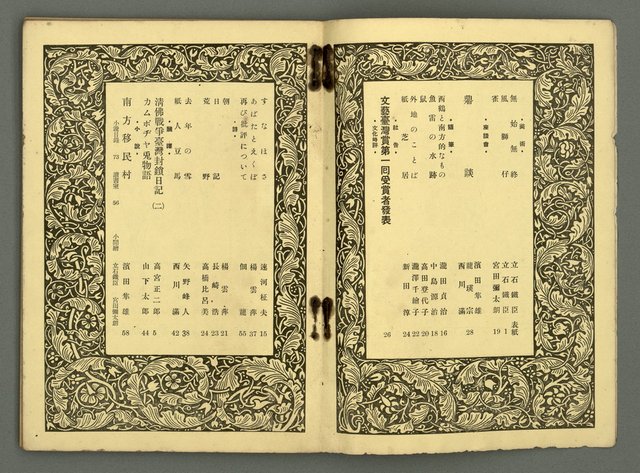 ・美術・
無始無終 立石鐵臣 表紙
風獅仔 立石鐵臣 1
雀 宮田彌太朗 19
・座談會・
鼎談 濱田隼雄 龍瑛宗 西川滿 28
・隨筆・
西鶴と南方的なもの 瀧田貞治 16
魚雷の水跡 中島源治 18
鼠 高田登代子 20
外地のことば 瀧澤千繪子 22
紙芝居 新田淳 24
・社告・
文藝臺灣賞第一回受賞者發表 26
・文化時評・
すなはさ 速河柾夫 15
あばたとえくぼ 楊雲萍 37
再び批評について 佃龍 55
・詩・
朝 楊雲萍 21
日記 長崎浩 23
荒野 高橋比呂美 24
去年の雪 矢野峰人 38
紙人豆馬 西川滿 42
・飜譯・
清佛戰爭臺灣封鎖日記(二) 高宮正二郎 5
カムボヂヤ兎物語 山下太郎 44
・小說・
南方移民村 濱田隼雄 58
小說日錄 73 讀書室 56 小間繪 立石鐵臣 宮田彌太朗